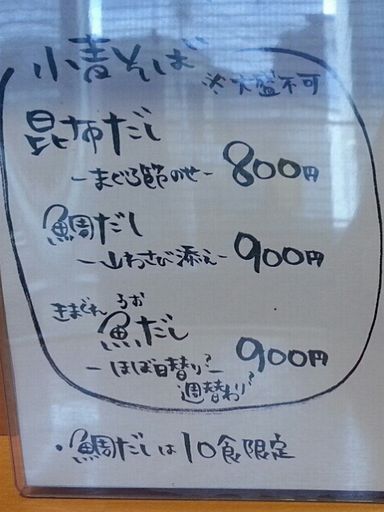 小麦そば
※大盛不可
昆布だし
ーまぐろ節のせー 800円
鯛だし
ー山わさび添えー 900円
きまぐれ うお
魚だし
ーほぼ日替り?ー 900円
週替わり?
・鯛だしは10食限定